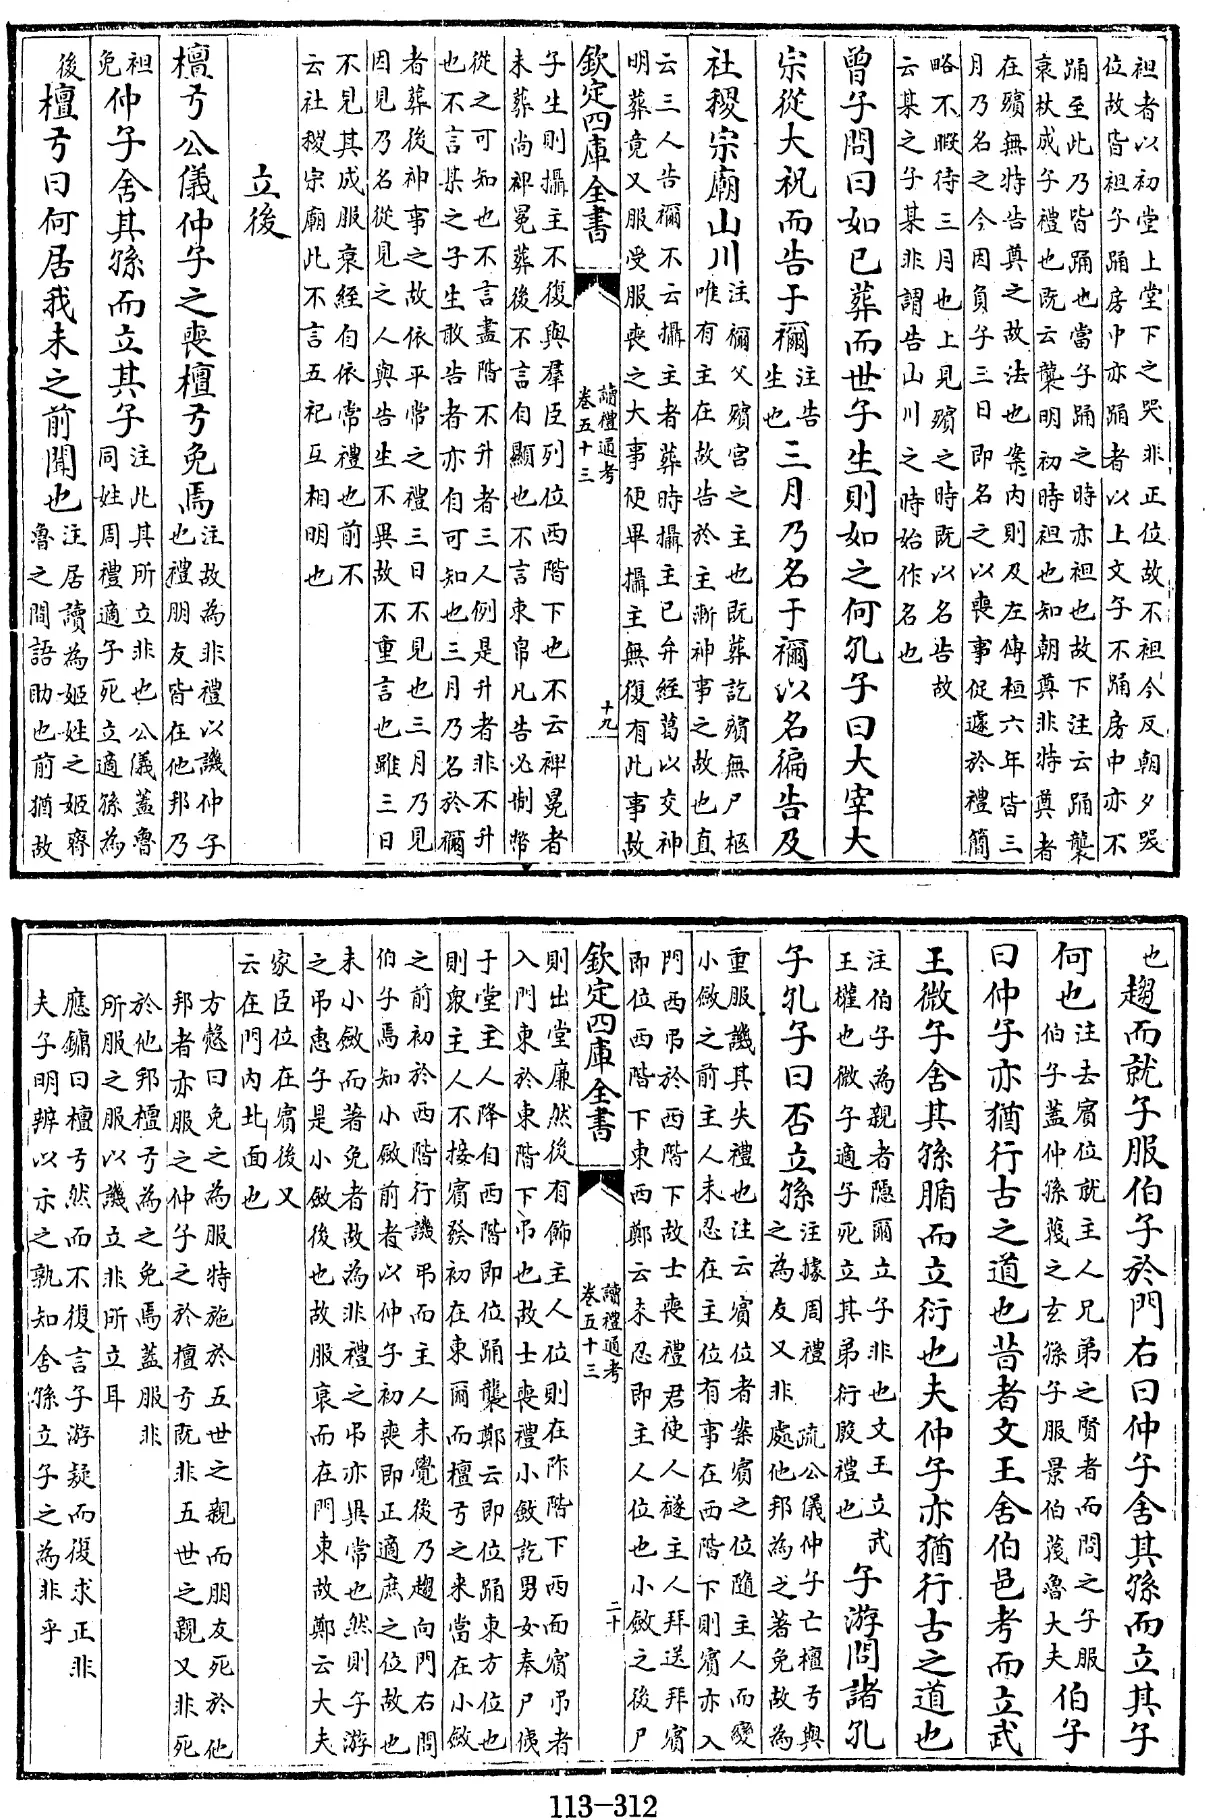 袒者以初堂上堂下之哭非正位故不袒今反朝夕哭
位故皆袒子踊房中亦踊者以上文子不踊房中亦不
踊至此乃皆踊也當子踊之時亦袒也故下注云踊襲
衰杖成子禮也既云襲明初時袒也知朝奠非特奠者
在殯無特告奠之故法也案内則及左傳桓六年皆三
月乃名之今因負子三日即名之以喪事促遽於禮簡
略不暇待三月也上見殯之時既以名告故
云某之子某非謂告山川之時始作名也
曾子問曰如已葬而世子生則如之何孔子曰大宰大
宗從大祝而告于禰注告生也三月乃名于禰以名徧告及
社稷宗廟山川注禰父殯宮之主也既葬訖殯無尸柩
唯有主在故告於主漸神事之故也直
云三人告禰不云攝主者葬時攝主已弁絰葛以交神
明葬竟又服受服喪之大事便畢攝主無復有此事故
欽定四庫全書
讀禮通考
卷五十三
十九
子生則攝主不復與羣臣列位西階下也不云裨冕者
未葬尚裨冕葬後不言自顯也不言束帛凡告必制幣
從之可知也不言盡階不升者三人例是升者非不升
也不言某之子生敢告者亦自可知也三月乃名於禰
者葬後神事之故依平常之禮三日不見也三月乃見
因見乃名從見之人與告生不異故不重言也雖三日
不見其成服衰絰自依常禮也前不
云社稷宗廟此不言五祀互相明也
立後
檀弓公儀仲子之喪檀弓免焉注故為非禮以譏仲子
也禮朋友皆在他邦乃
袒免仲子舍其孫而立其子注此其所立非也公儀蓋魯
同姓周禮適子死立適孫為
後檀弓曰何居我未之前聞也注居讀為姬姓之姬齊
魯之間語助也前猶故
也趨而就子服伯子於門右曰仲子舍其孫而立其子
何也注去賓位就主人兄弟之賢者而問之子服
伯子蓋仲孫蔑之玄孫子服景伯蔑魯大夫伯子
曰仲子亦猶行古之道也昔者文王舍伯邑考而立武
王微子舍其孫腯而立衍也夫仲子亦猶行古之道也
注伯子為親者隱爾立子非也文王立武
王權也微子適子死立其弟衍殷禮也子游問諸孔
子孔子曰否立孫注據周禮疏公儀仲子亡檀弓與
之為友又非處他邦為之著免故為
重服譏其失禮也注云賓位者案賓之位隨主人而變
小斂之前主人未忍在主位有事在西階下則賓亦入
門西弔於西階下故士喪禮君使人襚主人拜送拜賓
即位西階下東西鄭云未忍即主人位也小斂之後尸
欽定四庫全書
讀禮通考
卷五十三
二十
則出堂廉然後有飾主人位則在阼階下西面賓弔者
入門東於東階下弔也故士喪禮小斂訖男女奉尸侇
于堂主人降自西階即位踊襲鄭云即位踊東方位也
則衆主人不接賓發初在東爾而檀弓之来當在小斂
之前初於西階行譏弔而主人未覺後乃趨向門右問
伯子焉知小斂前者以仲子初喪即正適庶之位故也
未小斂而著免者故為非禮之弔亦異常也然則子游
之弔惠子是小斂後也故服衰而在門東故鄭云大夫
家臣位在賓後又
云在門内北面也
方慤曰免之為服特施於五世之親而朋友死於他
邦者亦服之仲子之於檀弓既非五世之親又非死
於他邦檀弓為之免焉蓋服非
所服之服以譏立非所立耳
應鏞曰檀弓然而不復言子游疑而復求正非
夫子明辨以示之孰知舍孫立子之為非乎
113-312